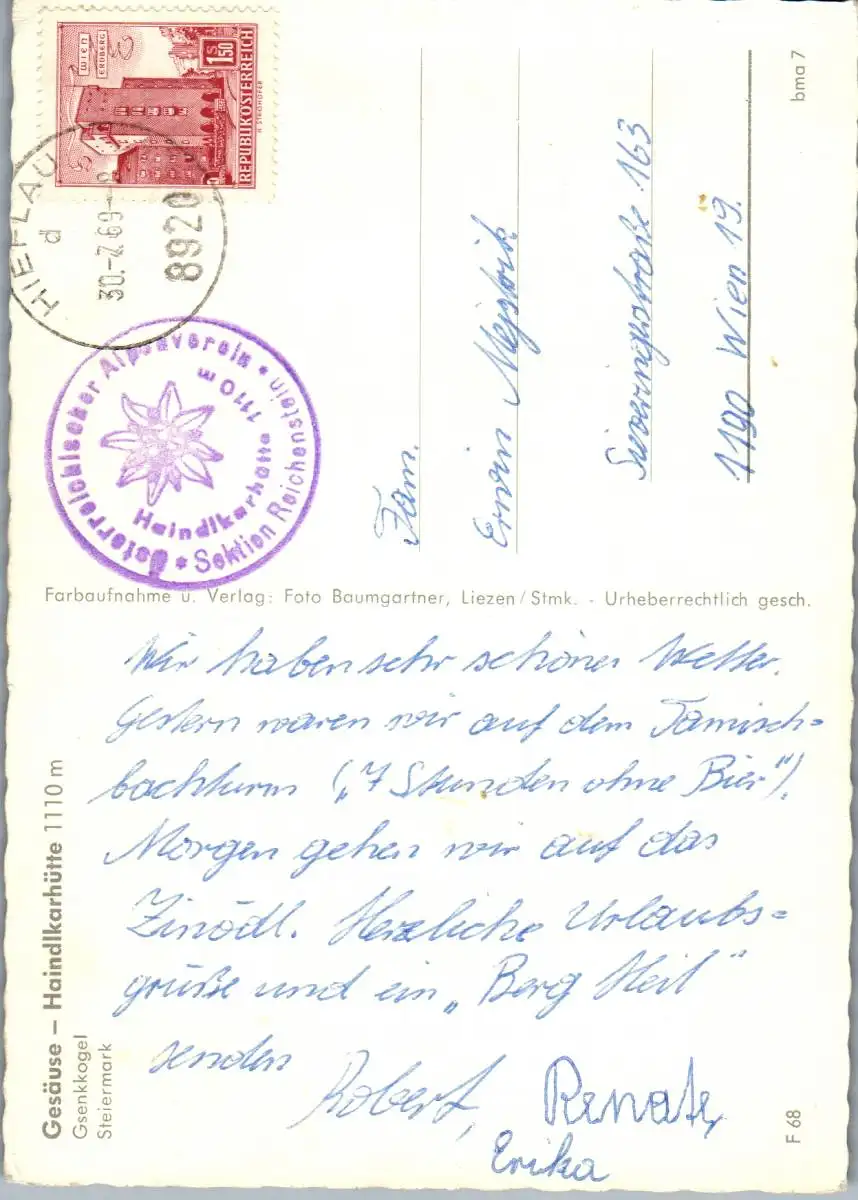 WIEN
ERDBERG
S 1.50
REPUBLIK ÖSTERREICH
H. STROHOFER
HIEFLAU
d
30.-7.69-8
8920
Österreichischer Alpenverein
Sektion Reichenstein
Haindlkarhütte
1110 m
bma 7
Fam.
Erwin Mejstrik
Sieveringerstraße 163
1190 Wien 19.
Farbaufnahme u. Verlag: Foto Baumgartner, Liezen/Stmk. - Urheberrechtlich gesch.
Wir haben sehr schönes Wetter.
Gestern waren wir auf dem Tamisch=
bachturm („7 Stunden ohne Bier").
Morgen gehen wir auf das
Zinödl. Herzliche Urlaubs=
grüße und ein „Berg Heil"
senden
Robert, Renate,
Erika
Gesäuse – Haindlkarhütte 1110 m
Gsenkkogel
Steiermark
F 68